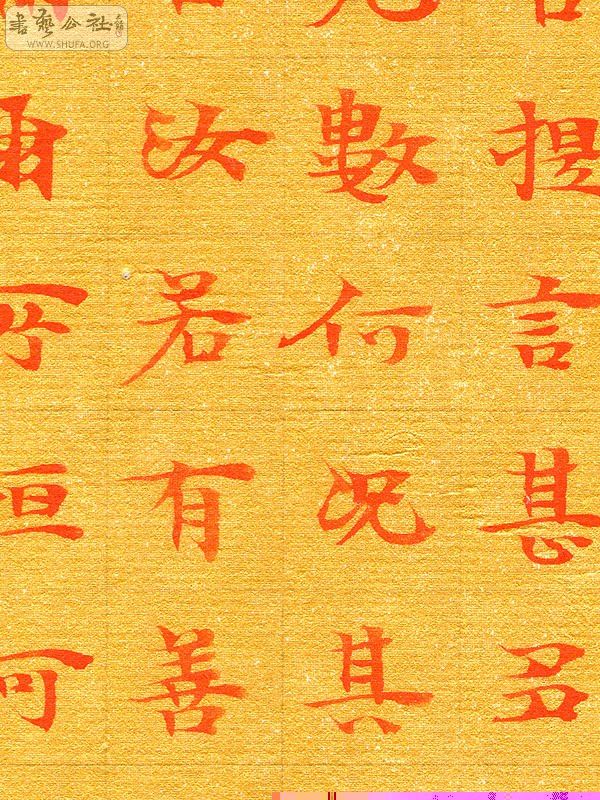 書藝公社
WWW.SHUFA.ORG
提言甚多
數何況其
汝若有善
爾所恒河